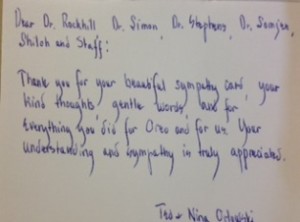 Dear Dr. Rockhill, Dr. Simon, Dr. Stephens, Dr. Somjen,
Shiloh and Staff:
Thank you for your beautiful sympathy card, your
kind thoughts, gentle words, and for
everything you did for Oreo and for us. Your
understanding and sympathy is truly appreciated.
Ted & Nina